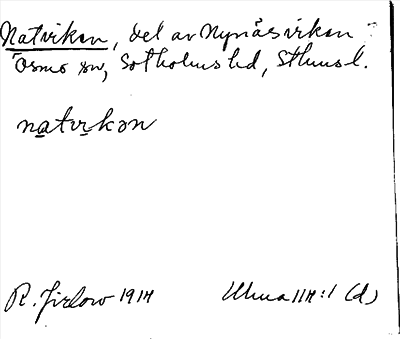 Natviken, del av Nynäsviken
Ösmo sn, Sotholms hd, Sthms l.
natvikən
R. Jirlow 1914
Uhua 114:1 (d)